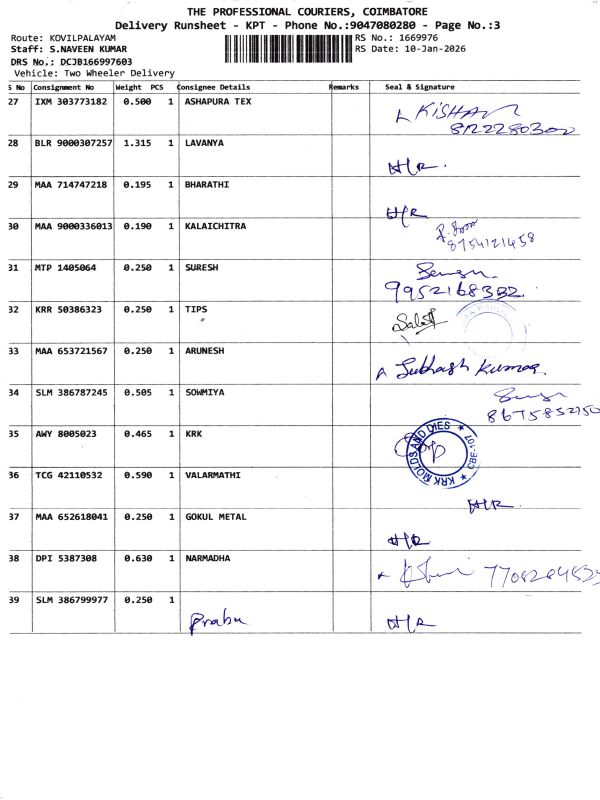 THE PROFESSIONAL COURIERS, COIMBATORE
Delivery Runsheet - KPT - Phone No.:9047080280 - Page No.:3
Route: KOVILPALAYAM RS No.: 1669976
Staff: S.NAVEEN KUMAR RS Date: 10-Jan-2026
DRS No.: DCJB166997603
Vehicle: Two Wheeler Delivery
S No Consignment No Weight PCS Consignee Details Remarks Seal & Signature
27 IXM 303773182 0.500 1 ASHAPURA TEX
28 BLR 9000307257 1.315 1 LAVANYA H/R.
29 MAA 714747218 0.195 1 BHARATHI H/R
30 MAA 9000336013 0.190 1 KALAICHITRA
8754121458
31 MTP 1405064 0.250 1 SURESH
9952168332
32 KRR 50386323 0.250 1 TIPS
33 MAA 653721567 0.250 1 ARUNESH Subhash Kumar
34 SLM 386787245 0.505 1 SOWMIYA
35 AWY 8005023 0.465 1 KRK KRK MOLDS AND DIES
36 TCG 42110532 0.590 1 VALARMATHI H/R
37 MAA 652618041 0.250 1 GOKUL METAL H/R
38 DPI 5387308 0.630 1 NARMADHA
39 SLM 386799977 0.250 1 Prabu H/R